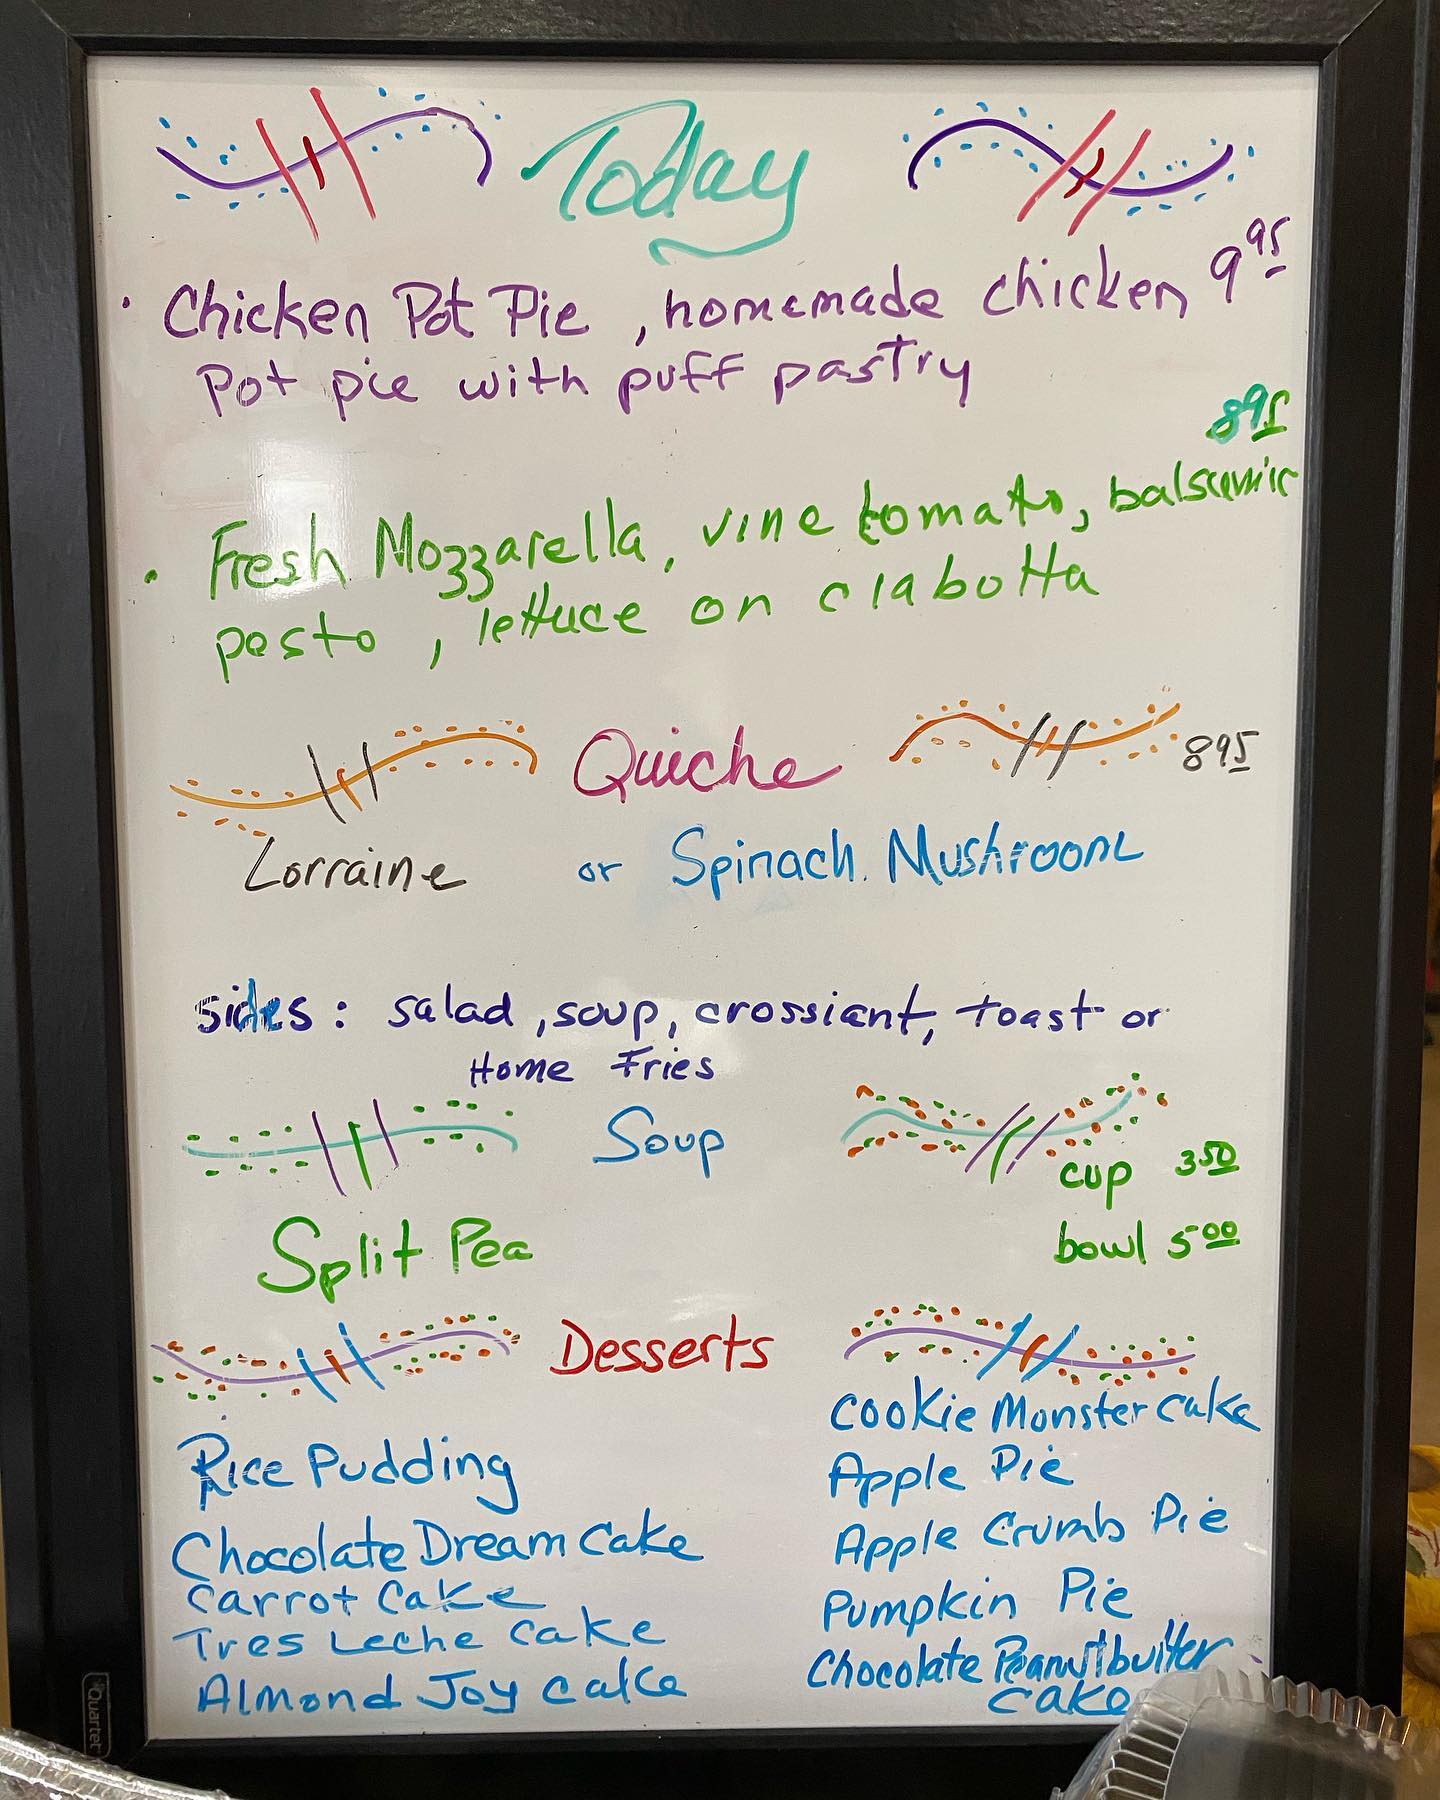 Today
Chicken Pot Pie, homemade chicken 9 95
Pot pie with puff pastry
8 95
Fresh Mozzarella, vine tomato, balsamic
pesto, lettuce on ciabotta
Quiche 8 95
Lorraine or Spinach Mushroom
sides: salad, soup, crossiant, toast or
Home Fries
Soup
cup 3 50
bowl 5 00
Split Pea
Desserts
Rice Pudding
Chocolate Dream Cake
Carrot Cake
Tres Leche Cake
Almond Joy Cake
Cookie Monster Cake
Apple Pie
Apple Crumb Pie
Pumpkin Pie
Chocolate Peanutbutter
cake
Quartet